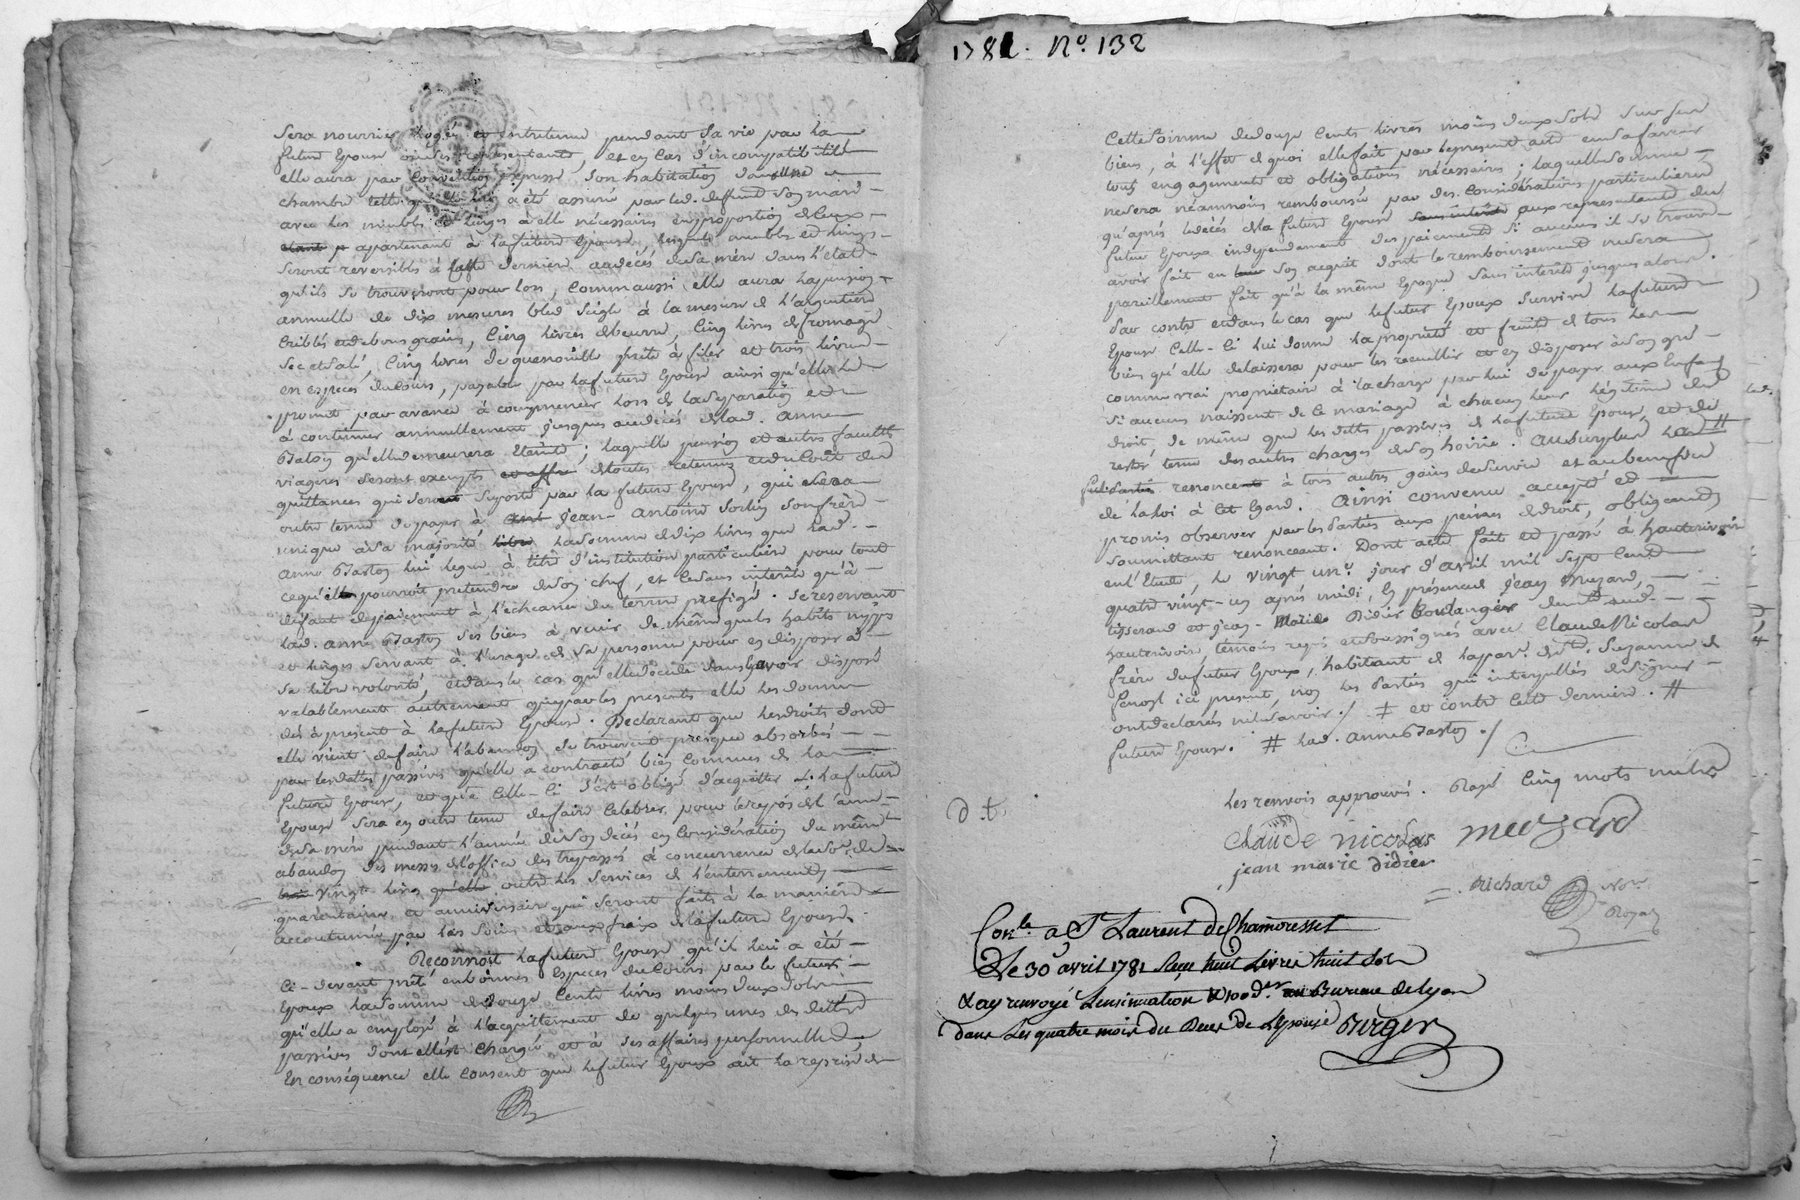 sera nourrie logée et entretenue pendant sa vie par la
future Epouse ou ses representants, et en cas d'incompatibilité
elle aura par convention expresse son habitation dans une
chambre telle qu'elle lui a été assurée par led. defunt son mari
avec les meubles et linges à elle nécessaires en proportion de ceux
etant p apartenant à la future Epouse, lesquels meubles et linges
seront reversibles à cette derniere au décés de sa mère dans l'état
qu'ils se trouveront pour lors, comm'aussi elle aura la pension
annuelle de dix mesures bled seigle à la mesure de l'argentiere
criblés et de bons grains, Cinq livres de beurre, Cinq livres de fromage
sec et salé, Cinq livres de quenouille prête à filer et trois livres
en especes du cours, payable par la future Epouse ainsi qu'elle le
promet par avance à commencer lors de la séparation et
à continuer annuellement jusques au décés de lad. Anne
Baston qu'elle demeurera éteinte; laquelle pension et autres facultés
viageres seront exempts et affr de toutes retenues et du coût des
quittances qui seront suporté par la future Epouse, qui sera
outre tenue de payer à Ant Jean-Antoine son frère
unique à sa majorité libre la somme de dix livres que lad.
Anne Baston lui legue à titre d'institution particuliere pour tout
ce qu'il pourroit pretendre de son chef, et ce sans interêts qu'à
défaut de paiement à l'echeance du terme prefigé. Se reservant
lad. Anne Baston ses biens à venir de même que les habits nippes
et linges servant à l'usage de sa personne pour en disposer à
sa libre volonté, et dans le cas qu'elle décede sans avoir disposé
valablement autrement que par les presents elle les donne
dès à present à la future Epouse. Declarant que les droits dont
elle vient de faire l'abandon se trouvent presque absorbés
par les dettes passives qu'elle a contracté bien connues de la
future Epouse, et qu'à celle-ci s'est obligé d'acquitter. La future
Epouse sera en outre tenue de faire celebrer pour le repos de l'ame
de sa mère pendant l'année de son décés en considération du même
abandon des messes de l'office des trepassés à concurrence de la so.e de
trois vingt livres qu'elle outre les services de l'enterrement
quarantaine et anniversaire qui seront faits à la maniere
accoutumée par les soins et aux frais de la future Epouse.
Reconnoit la future Epouse qu'il lui a été
ci-devant prêté en bonnes Especes du cours par le futur
Epoux la somme de douze cents livres moins deux sols
qu'elle a employé à l'acquittement de quelques unes des dettes
passives dont elle est chargée et à ses affaires personnelles
En conséquence elle consent que le futur Epoux ait la reprise de
1781. N.º 132
Cette somme de douze cents livres moins deux sols sur ses
biens, à l'effet de quoi elle fait par le present acte en sa faveur
tous engagements et obligations nécessaires; laquelle somme
ne sera néammoins remboursée par des considérations particulieres
qu'après le décés de la future Epouse sans interêts aux representants du
futur Epoux independament des paiements si aucuns il se trouve
avoir fait en leur son acquit dont le remboursement ne sera
pareillement fait qu'à la même Epoque sans interêts jusques alors.
Par contre et dans le cas que le futur Epoux survive la future
Epouse celle-ci lui donne la proprieté et fruits de tous les
biens qu'elle delaissera pour les recueillir et en disposer à son gré
comme vrai proprietaire à la charge par lui de payer aux Enfans
si aucuns naissent de ce mariage à chacun leur légitime de
droit, de même que les dettes passives de la future Epouse, et de
rester tenu des autres charges de son hoirie. Au surplus lad #
fut. Parties renoncent à tous autres gains de survie et au benefice
de la loi à cet égard. Ainsi convenu accepté et
promis observer par les Parties aux peines de droit, obligeant
soumettant renonceant. Dont acte fait et passé à hauterivoire
en l'Etude, le vingt un.e jour d'avril mil sept cent
quatre vingt-un après midi, En présence de Jean Muzard,
tisserand et jean-Marie Didier boulanger dem.t aud.
hauterivoire témoins requis et soussignés avec Claude Nicolas
frère du futur Epoux, habitant de la par. de S.t
ici present, non les Parties qui interpellées de signer
ont declarés ne le savoir./ ‡ et contre cette derniere. #
future Epouse. # lad. anne Baston ./
les renvois approuvés. Rayé Cinq mots nuls
d. t.
claude nicolas meuzard
jean marie didier
Richard No.re
Royal
Con.lé a S.t Laurent de Chamousset
Le 30 avril 1781 Reçu huit Livres huit sols
& ay renvoyé Linsinuation & 100.d.er au Bureau de Lyon
dans Les quatre mois du Deces de Lepouse Burger